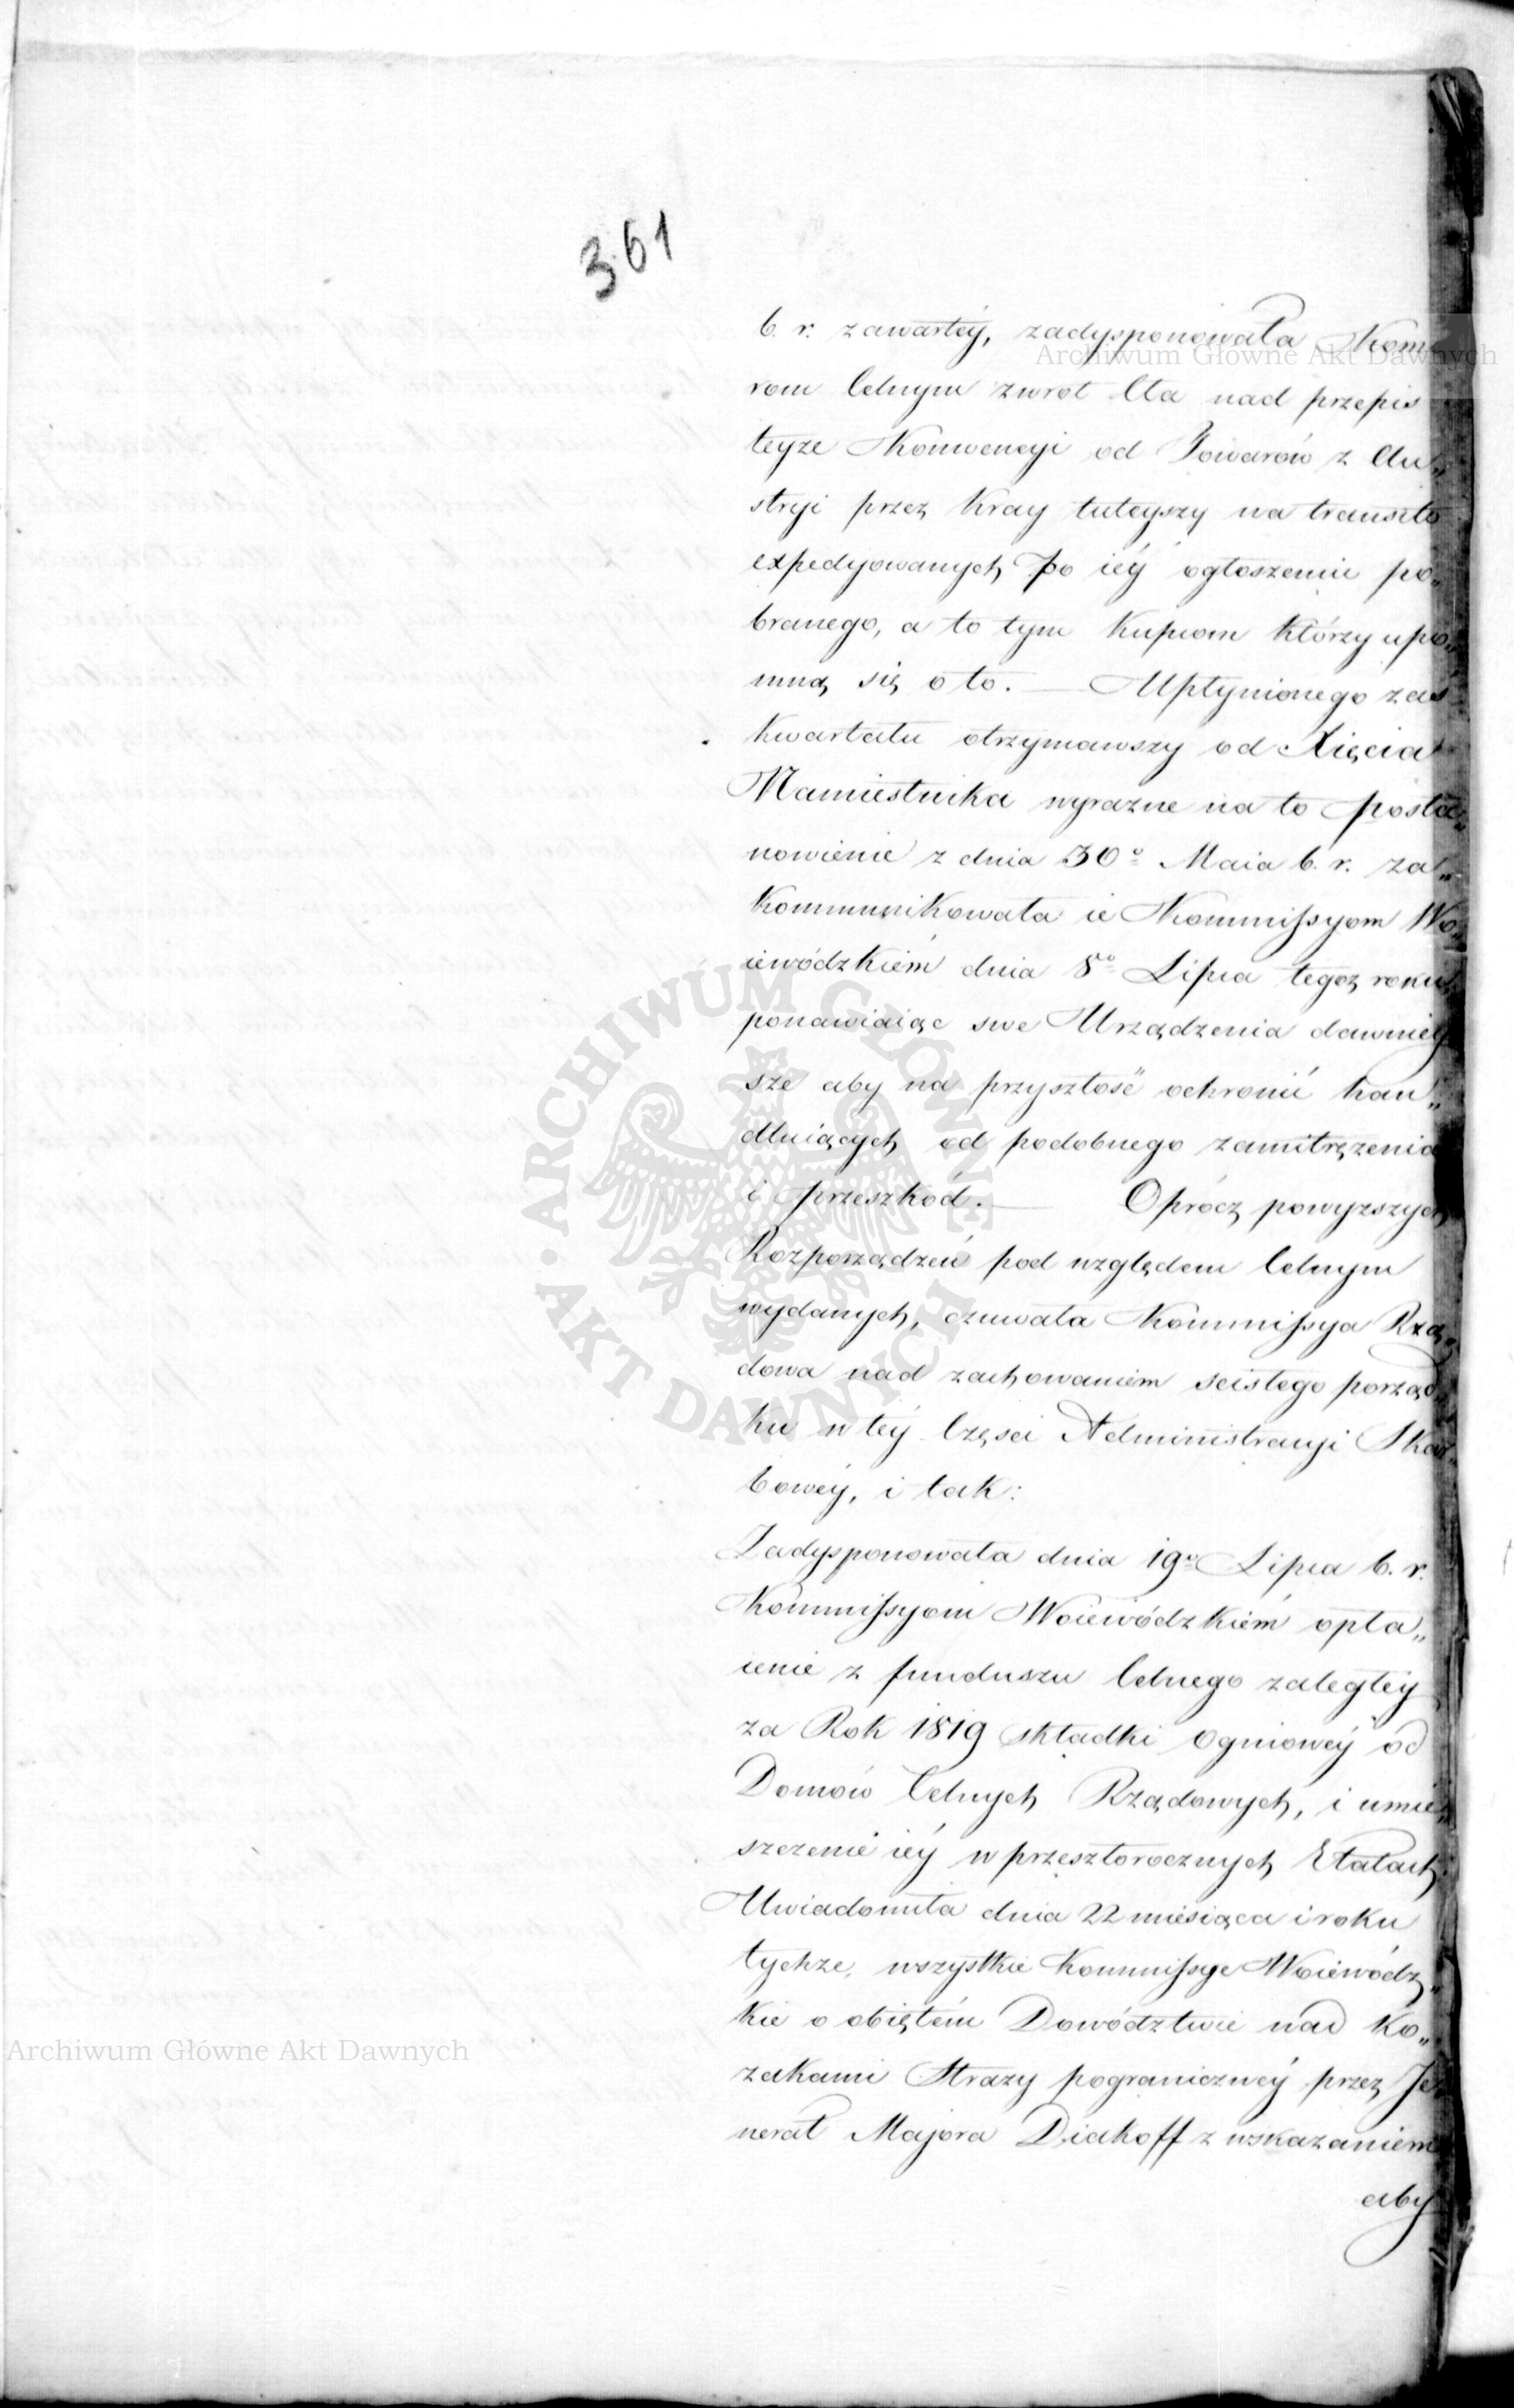 361
b. r. zawartéy, zadysponowała Kom
rom Celnym zwrot Cła nad przepis
teyże Konwencyi od Towarów z Au„
stryi przez Kray tuteyszy na transito
expedyowanych po iéy ogłoszeniu po„
branego, a to tym Kupcom którzy upo„
mną się o to. — Upłynionego zaś
Kwartału otrzymawszy od Xięcia
Namiestnika wyrazne na to posta„
nowienie z dnia 30º Maia b. r. za„
kommunikowała ie Kommissyom Wo„
iewódzkiém dnia 8º Lipca tegoż roku,
ponawiaiąc swe Urządzenia dawniey
sze aby na przyszłość ochronić han„
dluiących od podobnego zamitrężenia
i przeszkód. — Oprócz powyższych
Rozporządzeń pod względem Celnym
wydanych, czuwała Kommissya Rzą„
dowa nad zachowaniem scisłego porząd„
ku w téy Części Administracyi Skar„
bowéy, i tak:
Zadysponowała dnia 19º Lipca b. r.
Kommissyom Woiewódzkiém opła„
cenie z funduszu Celnego zaległéy
za Rok 1819 składki Ogniowéy od
Domów Celnych Rządowych, i umie„
szczenie iéy w przeszłorocznych Etatach.
Uwiadomiła dnia 22 miesiąca i roku
tychże, wszystkie Kommissye Woiewódz„
kie o obiętém Dowództwie nad Ko„
zakami Straży pogranicznéy przez Je„
nerał Majora Diakoff z wskazaniem
aby
Archiwum Główne Akt Dawnych
Archiwum Główne Akt Dawnych
ARCHIWUM GŁÓWNE • AKT DAWNYCH